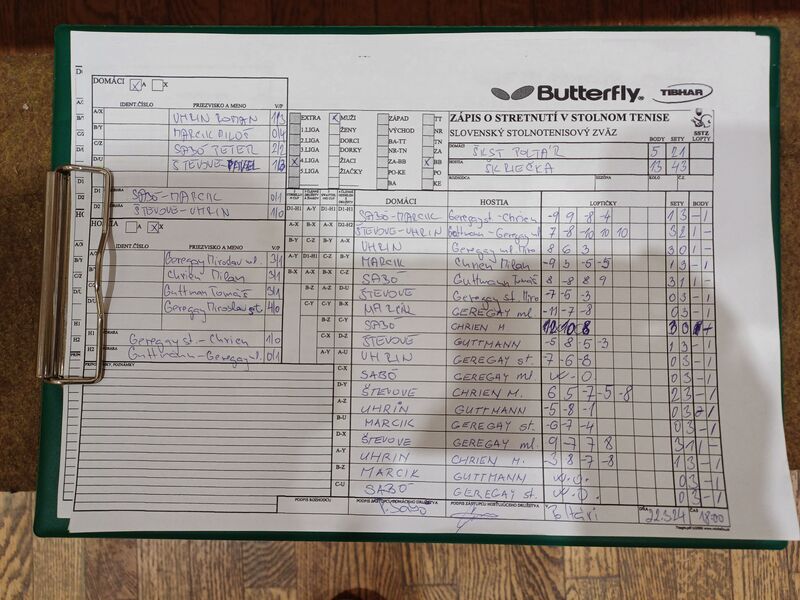 Butterfly® TIBHAR
DOMÁCI X A X
IDENT.ČÍSLO PRIEZVISKO A MENO V/P
A/X UHRIN ROMAN 1/3
B/Y MARCIK MILOŠ 0/4
C/Z SABÓ PETER 2/2
D/U ŠTEVOVE PAVEL 1/3
D1 SABÓ-MARCIK 0/1
D2 ŠTEVOVE-UHRIN 1/0
HOSTIA A X X
IDENT.ČÍSLO PRIEZVISKO A MENO V/P
Geregay Miroslav ml. 3/1
Chrien Milan 3/1
Guttman Tomáš 3/1
Geregay Miroslav st 4/0
H1 Geregay st.-Chrien 1/0
H2 Guttmann-Geregay ml. 0/1
POZNÁMKY
EXTRA X MUŽI ZÁPAD TT
1.LIGA ŽENY VÝCHOD NR
2.LIGA DORCI BA-TT TN
3.LIGA DORKY NR-TN ZA
X 4.LIGA ŽIACI ZA-BB X BB
5.LIGA ŽIAČKY PO-KE PO
BA KE
ZÁPIS O STRETNUTÍ V STOLNOM TENISE
SLOVENSKÝ STOLNOTENISOVÝ ZVÄZ SSTZ
DOMÁCI ŠKST POLTÁR BODY 5 SETY 21 LOPTY
HOSTIA SKLIEČKA 13 43
ROZHODCA SEZÓNA KOLO Č.Z.
DOMÁCI HOSTIA LOPTIČKY SETY BODY
SABÓ-MARCIK Geregay st-Chrien -9 9 -8 -4 1 3 -1
ŠTEVOVE-UHRIN Guttman-Geregay ml 7 -8 -10 10 10 3 2 1 -
UHRIN Geregay Miro 8 6 3 3 0 1 -
MARCIK Chrien Milan -9 3 -5 -5 1 3 -1
SABÓ Guttmann Tomáš 8 -8 8 9 3 1 1 -
ŠTEVOVE Geregay st. Miro -7 -5 -3 0 3 -1
MARCIK GEREGAY ml. -11 -7 -8 0 3 -1
SABO CHRIEN M 12 10 8 3 0 1 -
ŠTEVOVE GUTTMANN -5 8 -5 -3 1 3 -1
UHRIN GEREGAY st -7 -6 -8 0 3 -1
SABÓ GEREGAY ml W-O. 0 3 -1
ŠTEVOVE CHRIEN M. 6 5 -7 -5 -8 2 3 -1
UHRIN GUTTMANN -5 -8 -1 0 3 -1
MARCIK GEREGAY st. -6 -7 -4 0 3 -1
ŠTEVOVE GEREGAY ml. 9 -7 7 8 3 1 1 -
UHRIN CHRIEN M. -3 8 -7 -8 1 3 -1
MARCIK GUTTMANN W.O. 0 3 -1
SABÓ GEREGAY st. W.O. 0 3 -1
PODPIS ROZHODCU PODPIS ZÁSTUPCU DOMÁCEHO DRUŽSTVA PODPIS ZÁSTUPCU HOSŤUJÚCEHO DRUŽSTVA V DŇA 22.3.24 ČAS 18:00